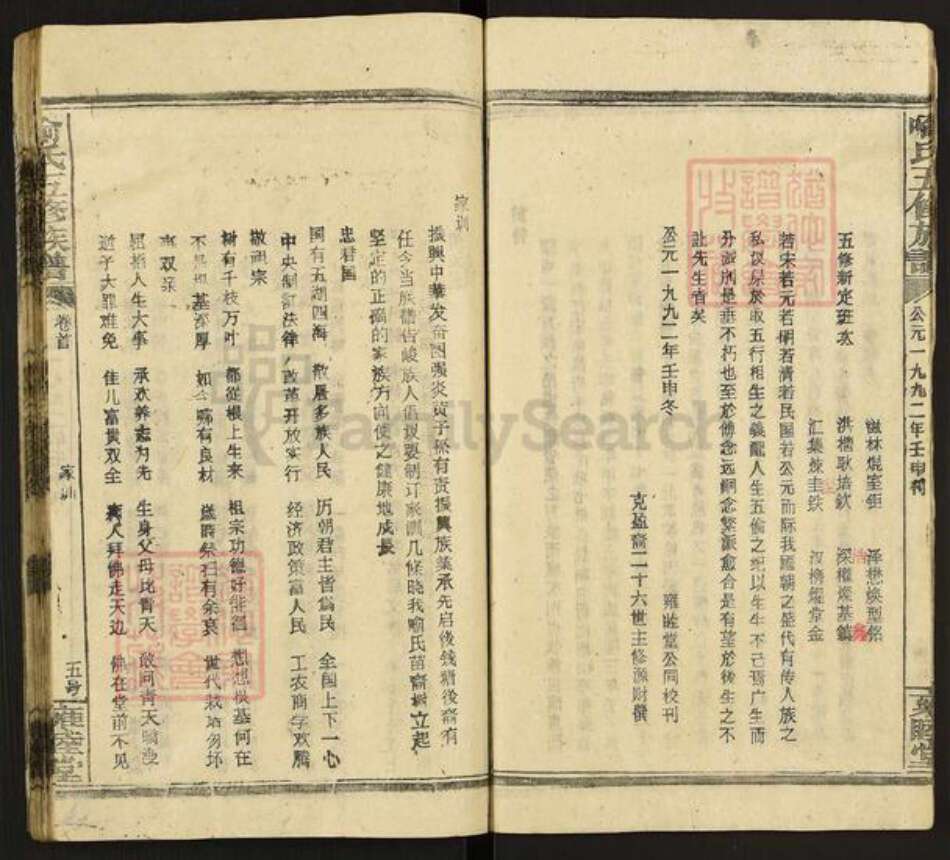 喻氏五修族譜
公元一九九二年壬申
睦堂
樹林焜室鉅 澤懋煥型銘
洪櫺耿培欽 深權燦基鎮
汇集煉圭鉄 汉槐燿堂金
五修新定班次
若宋若元若明若清若民国若公元而际我國朝之盛代有传人族之
私拟原於取五行相生之義寵人生五倫之纪以生生不已焉广生而
分派別是垂不朽也至於傳念远嗣念繁派愈合是有望於後生之不
訨先生者矣
公元一九九二年壬申冬
雍睦堂公同校刊
克盈裔二十六世主修源财撰
家训
振興中華发奋图强炎黄子孫有责振興族業承先启後钱糖後裔有
任今当族譜告峻族人倡议要制订家訓几條晓我喻氏苗裔樹立起
坚定的正确的家族方向使之健康地成長
忠君国
国有五湖四海 散居多族人民 历朝君主皆為民 全国上下一心
中央制訂法律 改革开放实行 经济政策富人民 工农商学欢腾
敬祖宗
树有千枝万叶 都從根上生来 祖宗功德好徘徊 想想從基何在
不是根基深厚 如今哪有良材 歲時祭扫有余哀 世代栽培勿坏
孝双亲
屈指人生大事 承欢养志为先 生身父母比青天 敢问青天
逆子大罪难免 佳儿富贵双全 痴人拜佛走天边 佛在堂前不见
喻氏五修族譜 卷首 家训 五号 雍睦堂
FamilySearch